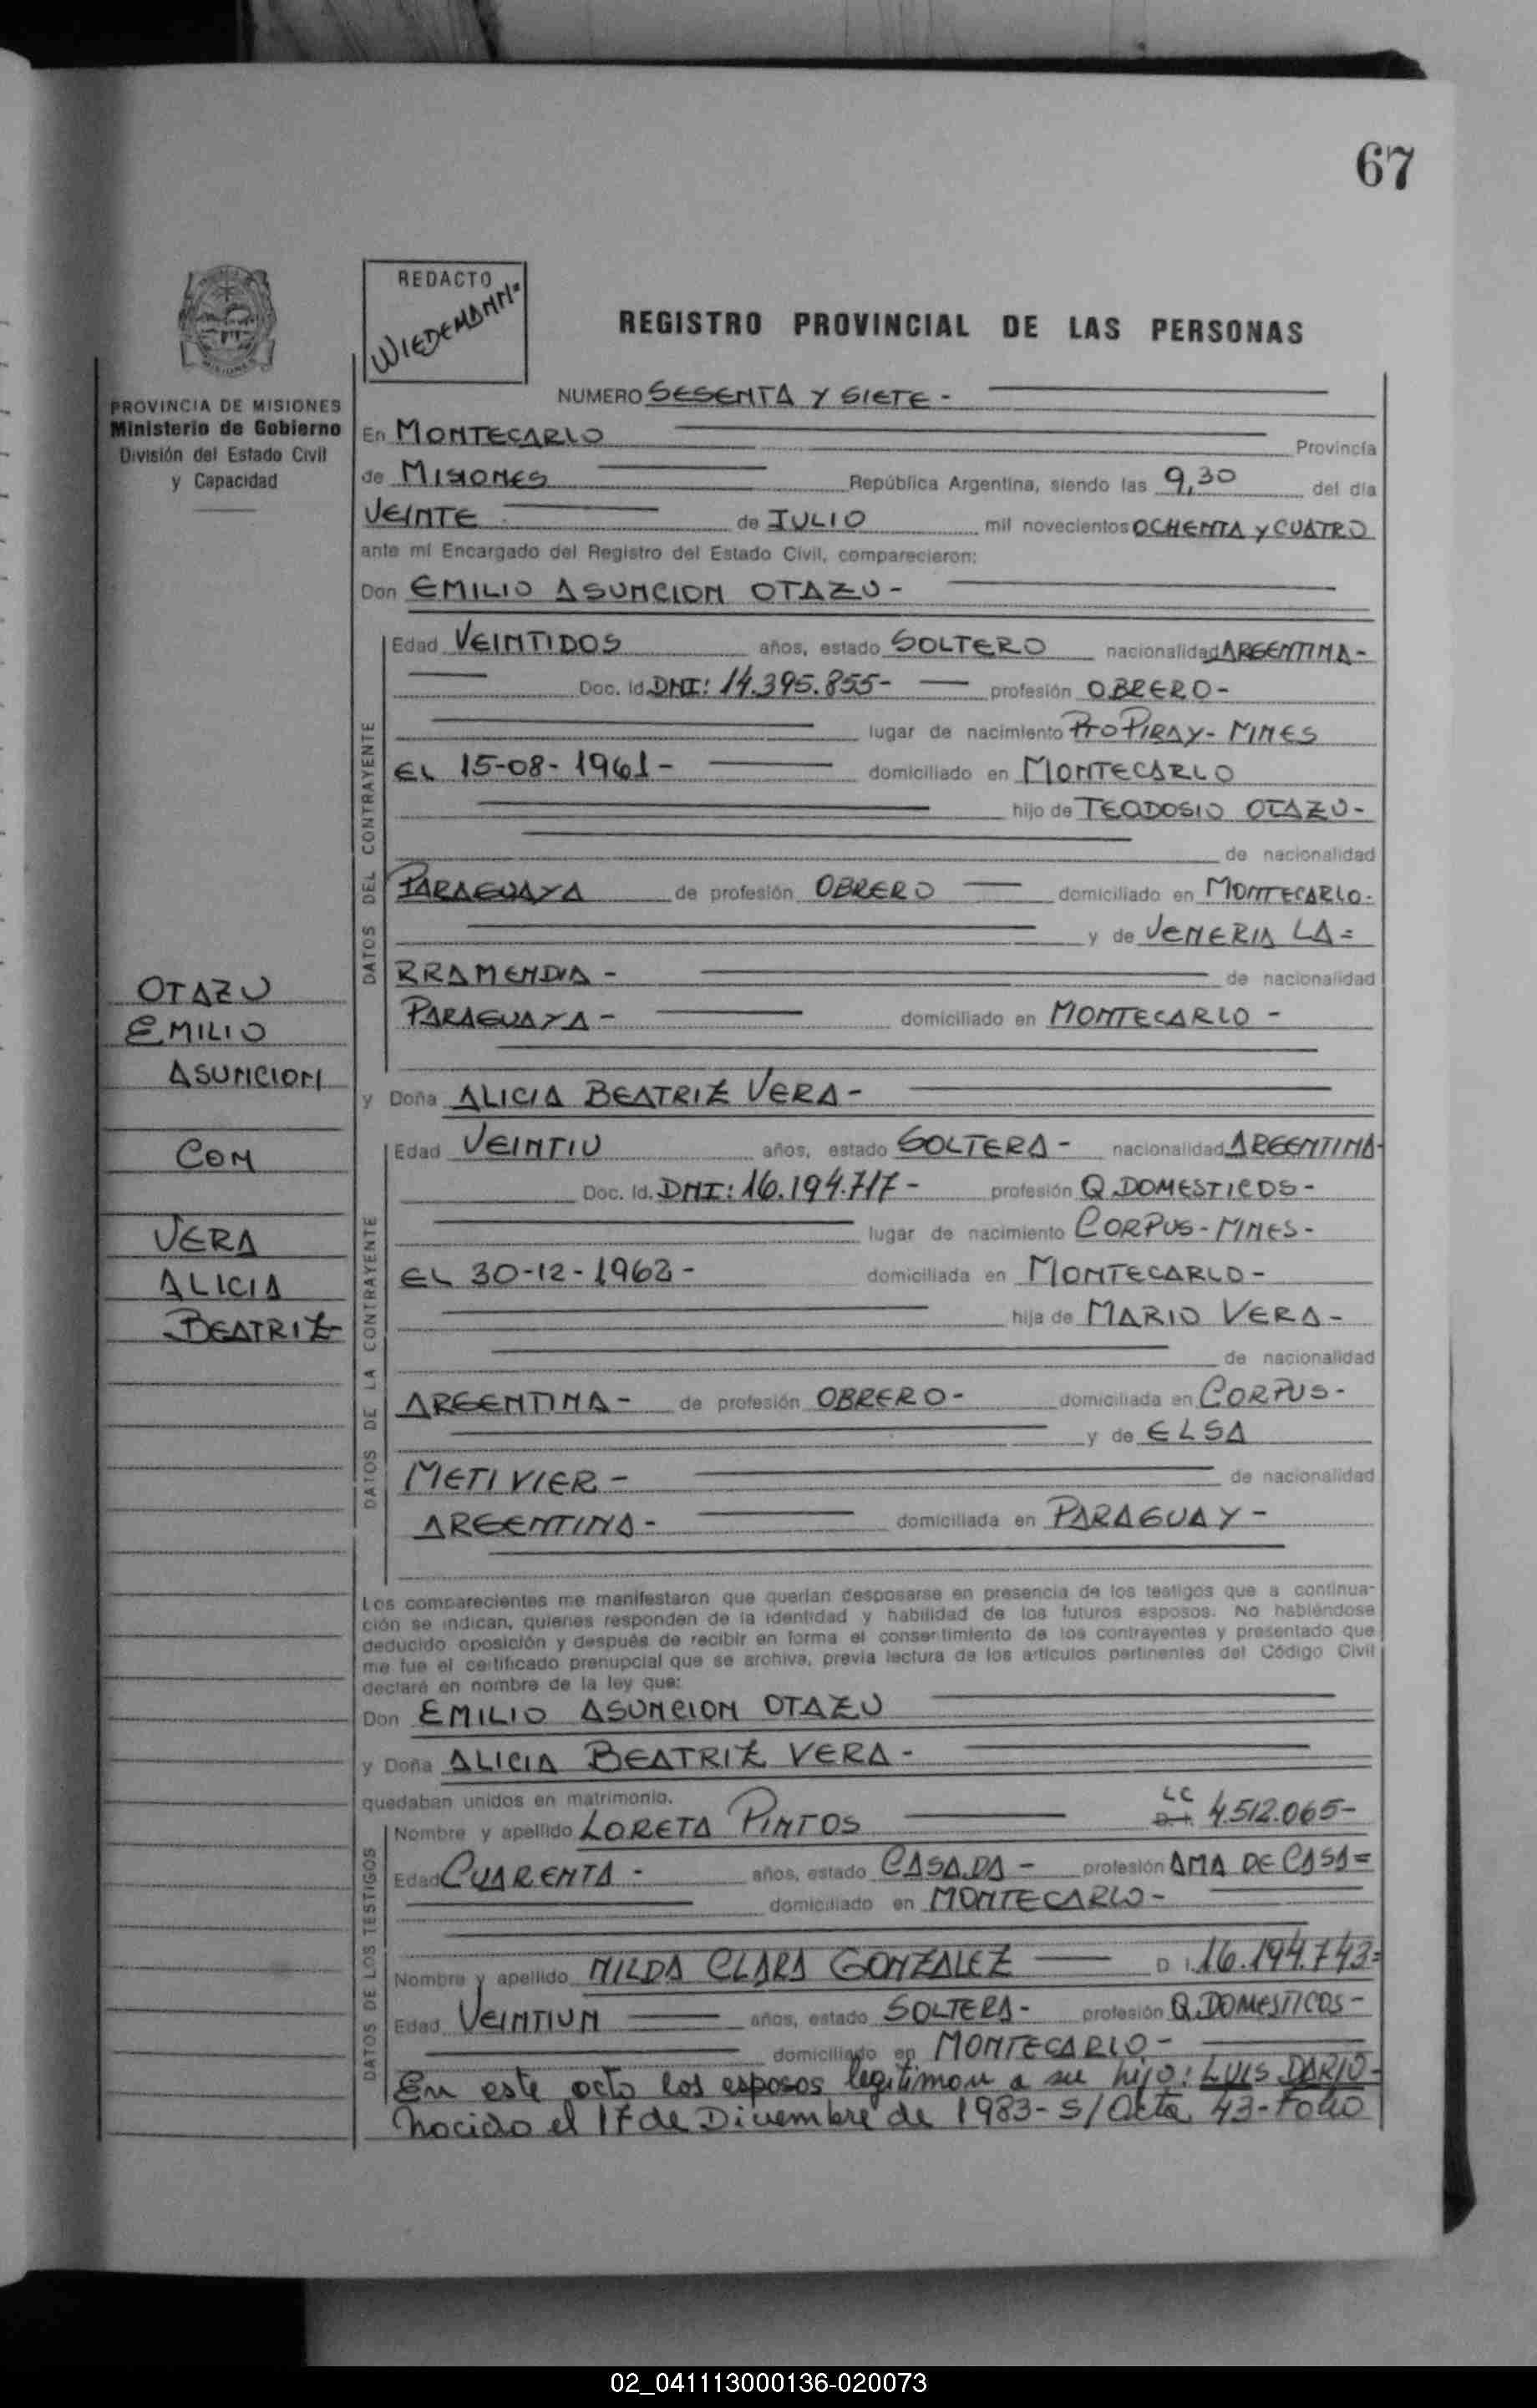 67
REDACTO
WIEDEMANN
REGISTRO PROVINCIAL DE LAS PERSONAS
MISIONES
PROVINCIA DE MISIONES
Ministerio de Gobierno
División del Estado Civil
y Capacidad
NUMERO SESENTA Y SIETE -
En MONTECARLO Provincia
de MISIONES República Argentina, siendo las 9,30 del día
VEINTE de JULIO mil novecientos OCHENTA Y CUATRO
ante mí Encargado del Registro del Estado Civil, comparecieron:
Don EMILIO ASUNCION OTAZU -
DATOS DEL CONTRAYENTE
Edad VEINTIDOS años, estado SOLTERO nacionalidad ARGENTINA -
Doc. Id. DNI: 14.395.855 - profesión OBRERO -
lugar de nacimiento PTO PIRAY - MNES
EL 15-08-1961 - domiciliado en MONTECARLO
hijo de TEODOSIO OTAZU -
de nacionalidad
PARAGUAYA de profesión OBRERO domiciliado en MONTECARLO -
y de VENERIA LA =
RRAMENDIA - de nacionalidad
PARAGUAYA - domiciliado en MONTECARLO -
OTAZU
EMILIO
ASUNCION
CON
VERA
ALICIA
BEATRIZ
y Doña ALICIA BEATRIZ VERA -
DATOS DE LA CONTRAYENTE
Edad VEINTIU años, estado SOLTERA - nacionalidad ARGENTINA -
Doc. Id. DNI: 16.194.717 - profesión Q. DOMESTICOS -
lugar de nacimiento CORPUS - MNES -
EL 30-12-1962 - domiciliada en MONTECARLO -
hija de MARIO VERA -
de nacionalidad
ARGENTINA - de profesión OBRERO - domiciliada en CORPUS -
y de ELSA
METIVIER - de nacionalidad
ARGENTINA - domiciliada en PARAGUAY -
Los comparecientes me manifestaron que querían desposarse en presencia de los testigos que a continua-
ción se indican, quienes responden de la identidad y habilidad de los futuros esposos. No habiéndose
deducido oposición y después de recibir en forma el consentimiento de los contrayentes y presentado que
me fue el certificado prenupcial que se archiva, previa lectura de los artículos pertinentes del Código Civil
declaré en nombre de la ley que:
Don EMILIO ASUNCION OTAZU
y Doña ALICIA BEATRIZ VERA -
quedaban unidos en matrimonio.
DATOS DE LOS TESTIGOS
Nombre y apellido LORETA PINTOS LC D.I. 4.512.065 -
Edad CUARENTA - años, estado CASADA - profesión AMA DE CASA =
domiciliado en MONTECARLO -
Nombre y apellido NILDA CLARA GONZALEZ D I. 16.194.743 =
Edad VEINTIUN años, estado SOLTERA - profesión Q. DOMESTICOS -
domiciliado en MONTECARLO -
En este acto los esposos legitiman a su hijo: LUIS DARIO -
nacido el 17 de Diciembre de 1983 - S/ Acta 43 - Folio
02_041113000136-020073